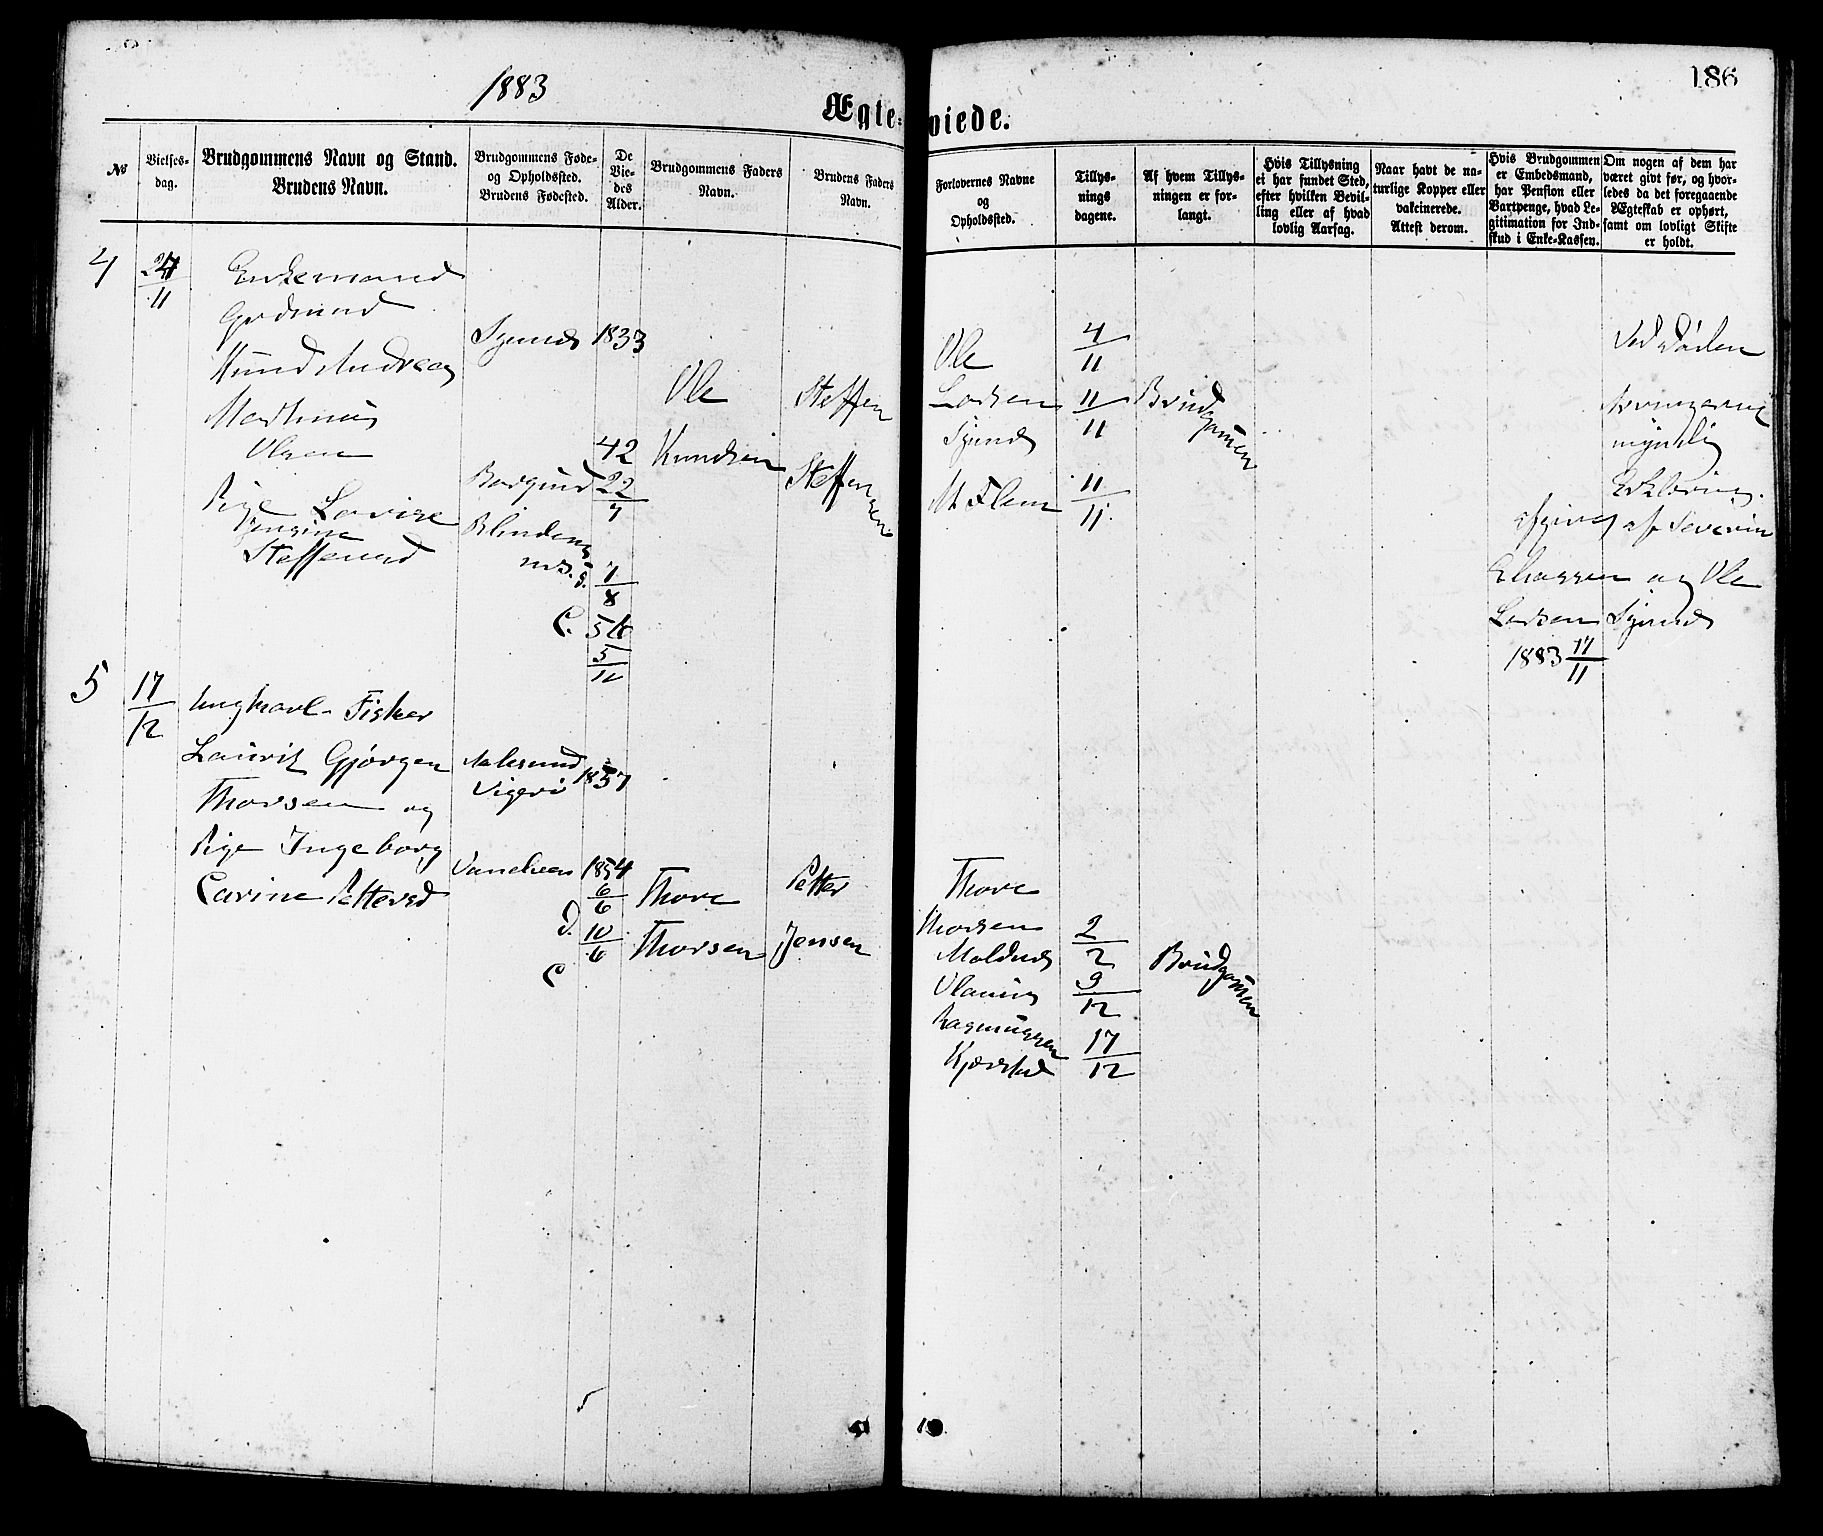 1883
186
Ægteviede.
№
Vielses-
dag.
Brudgommens Navn og Stand.
Brudens Navn.
Brudgommens Føde-
og Opholdssted.
Brudens Fødested.
De
Vie-
des
Alder.
Brudgommens Faders
Navn.
Brudens Faders
Navn.
Forlovernes Navne
og
Opholdssted.
Tillys-
nings
dagene.
Af hvem Tillys-
ningen er for-
langt.
Hvis Tillysning
ei har fundet Sted,
efter hvilken Bevil-
ling eller af hvad
lovlig Aarsag.
Naar havt de na-
turlige Kopper eller
vakcinerede.
Attest derom.
Hvis Brudgommen
er Embedsmand,
har Pension eller
Vartpenge, hvad Le-
gitimation for Ind-
skud i Enke-Kassen.
Om nogen af dem har
været givt før, og hvor-
ledes da det foregaaende
Ægteskab er ophørt,
samt om lovligt Skifte
er holdt.
4
11
Enkemand
Gudmund
Martinus
Olsen
Pige Lovise
Steffensd
1833
Borgund
42
22
7
7
8
C.
54
5
11
Ole
Knudsen
Steffen
Steffensen
Ole
Larsen
M Flem
4
11
11
11
11
11
Brudgommen
Ved Døden
myndig
Erklæring
afgivet af Severin
og Ole
Larsen
1883 17
11
5
17
12
Ungkarl Fisker
Laurits Gjørgen
Thorsen og
Pige Ingeborg
Carine Pettersd
Aalesund
Vigerø
1857
1854
6
6
D.
10
6
C
Thore
Thorsen
Petter
Jensen
Thore
Thorsen
Rasmussen
Kjærstad
2
2
9
12
17
12
Brudgommen